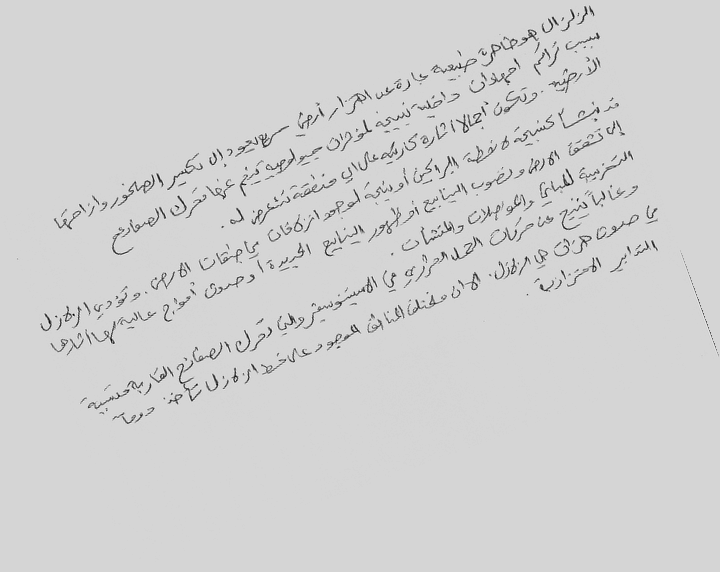 الزلزال هو ظاهرة طبيعية عبارة عن اهتزاز أرضي سريع يعود إلى تكسر الصخور وإزاحتها
بسبب تراكم اجهادات داخلية نتيجة لمؤثرات جيولوجية ينجم عنها تحرك الصفائح
الأرضية. وتكون اجمالا اثارة كارثيه على اي منطقة تتعرض له.
قد ينشأ كنتيجة لانشطة البراكين أو نتيجة لوجود انزلاقات في طبقات الارض. وتؤدي الزلازل
إلى تشقق الارض ونضوب الينابيع أو ظهور الينابيع الجديدة أو حدوث أمواج عالية لها اثارها
التخريبية للمباني والمواصلات والمنشآت.
وغالباً ينتج عن حركات الحمل الحراري في الاسينوسفير والتي تحرك الصفائح القارية مسببة
في حدوث هزات هي الزلازل. الا ان مختلف المناطق الموجود على خط الزلازل تأخذ دوماً
التدابير الاحترازية.